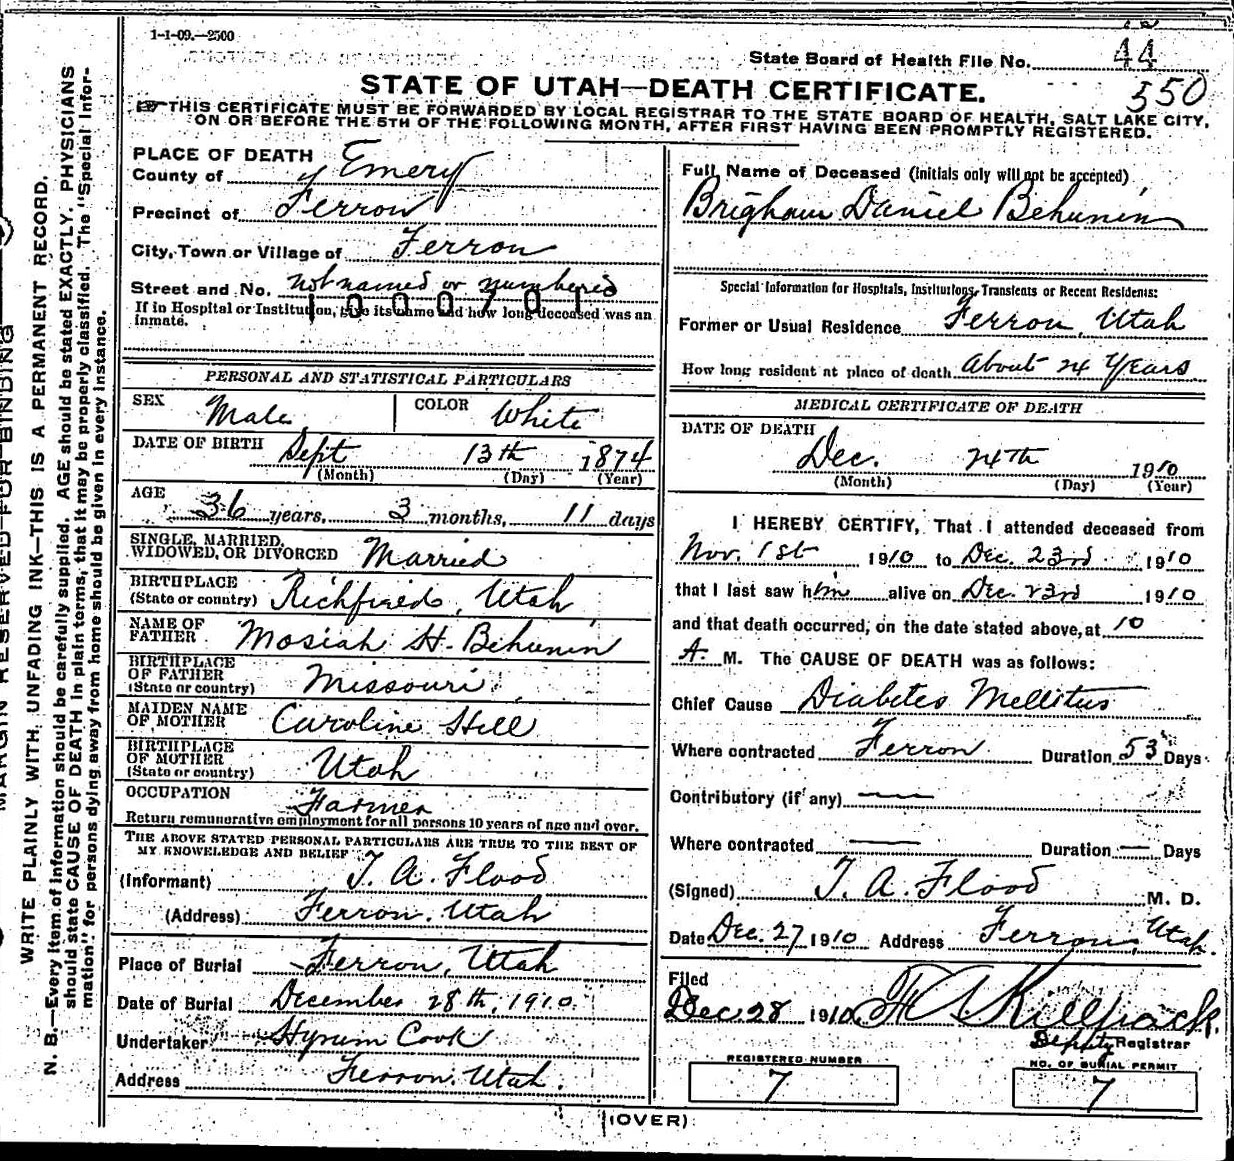 1-1-09.—2500
State Board of Health File No. 44
550
STATE OF UTAH—DEATH CERTIFICATE.
THIS CERTIFICATE MUST BE FORWARDED BY LOCAL REGISTRAR TO THE STATE BOARD OF HEALTH, SALT LAKE CITY,
ON OR BEFORE THE 5TH OF THE FOLLOWING MONTH, AFTER FIRST HAVING BEEN PROMPTLY REGISTERED.
MARGIN RESERVED FOR BINDING
WRITE PLAINLY WITH UNFADING INK—THIS IS A PERMANENT RECORD.
N. B.—Every item of information should be carefully supplied. AGE should be stated EXACTLY. PHYSICIANS
should state CAUSE OF DEATH in plain terms, that it may be properly classified. The "Special Infor-
mation" for persons dying away from home should be given in every instance.
PLACE OF DEATH
County of Emery
Precinct of Ferron
City, Town or Village of Ferron
Street and No. not named or numbered
1000701
If in Hospital or Institution, give its name and how long deceased was an
inmate.
PERSONAL AND STATISTICAL PARTICULARS
SEX Male COLOR White
DATE OF BIRTH Sept 13th 1874
(Month) (Day) (Year)
AGE
36 years, 3 months, 11 days
SINGLE, MARRIED,
WIDOWED, OR DIVORCED Married
BIRTHPLACE
(State or country) Richfield, Utah
NAME OF
FATHER Mosiah H. Behunin
BIRTHPLACE
OF FATHER
(State or country) Missouri
MAIDEN NAME
OF MOTHER Caroline Hill
BIRTHPLACE
OF MOTHER
(State or country) Utah
OCCUPATION Farmer
Return remunerative employment for all persons 10 years of age and over.
THE ABOVE STATED PERSONAL PARTICULARS ARE TRUE TO THE BEST OF
MY KNOWELEDGE AND BELIEF
(Informant) T. A. Flood
(Address) Ferron, Utah
Place of Burial Ferron, Utah
Date of Burial December 28th, 1910
Undertaker Hyrum Cook
Address Ferron, Utah.
Full Name of Deceased (Initials only will not be accepted)
Brigham Daniel Behunin
Special Information for Hospitals, Institutions, Transients or Recent Residents:
Former or Usual Residence Ferron, Utah
How long resident at place of death About 24 Years
MEDICAL CERTIFICATE OF DEATH
DATE OF DEATH
Dec. 24th 1910
(Month) (Day) (Year)
I HEREBY CERTIFY, That I attended deceased from
Nov. 1st 1910 to Dec. 23rd 1910
that I last saw him alive on Dec. 23rd 1910
and that death occurred, on the date stated above, at 10
A. M. The CAUSE OF DEATH was as follows:
Chief Cause Diabetes Mellitus
Where contracted Ferron Duration 53 Days
Contributory (if any) —
Where contracted — Duration — Days
(Signed) T. A. Flood M. D.
Date Dec. 27 1910 Address Ferron, Utah.
Filed
Dec 28 1910 Killpack
Deputy Registrar
REGISTERED NUMBER
7
NO. OF BURIAL PERMIT
7
(OVER)